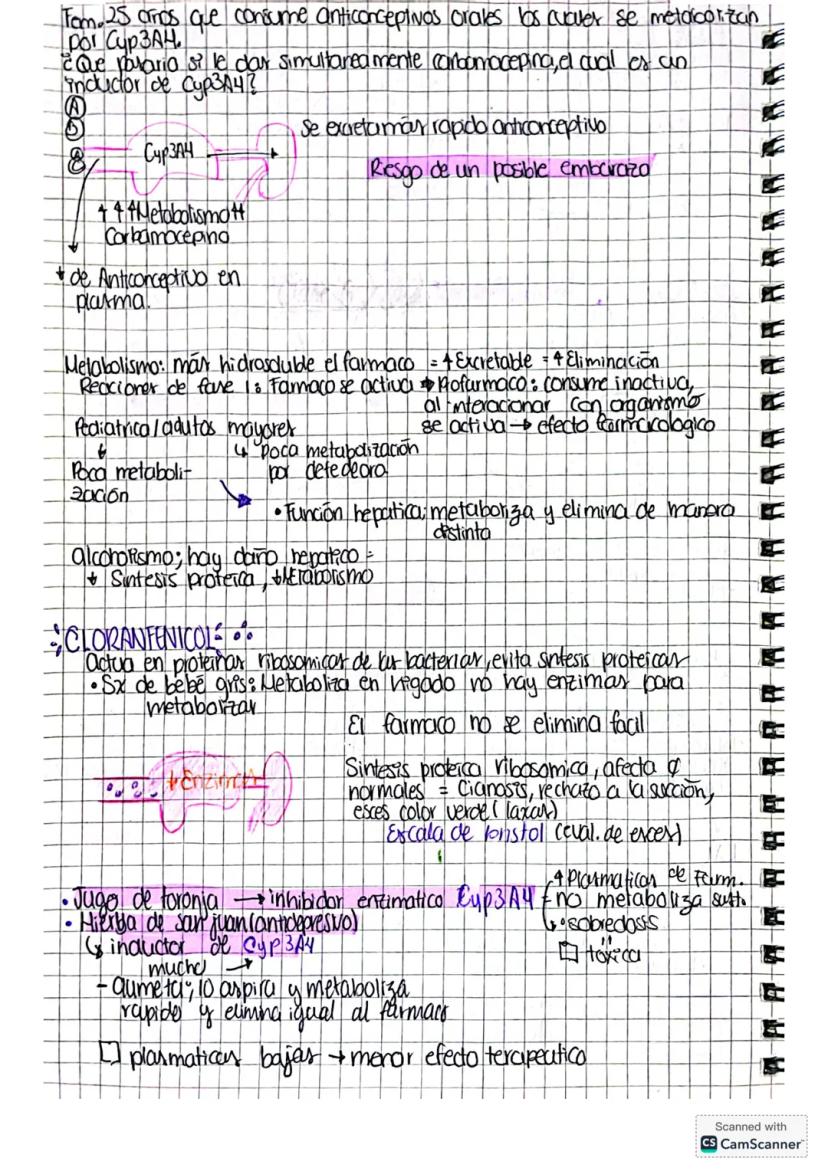 Fem. 25 años que consume anticonceptivos orales los cuales se metabolizan
por Cyp3A4.
¿Que pasaria si le das simultaneamente carbamacepina, el cual es un
inductor de Cyp3A4?
Cyp3A4
Se excreta mas rapido anticonceptivo
Riesgo de un posible embarazo
↑↑↑Metabolismo
Carbamacepina
↓ de Anticonceptivo en
plasma.
Metabolismo: más hidrosoluble el farmaco = ↑Excretable = ↑Eliminación
Reacciones de fase 1: Farmaco se activa → Profarmaco: consume inactiva,
al interacionar con organismo
se activa → efecto farmacologico
Pediatrica/adultos mayores
↓
Poca metaboli-
zación
↳ poca metabolización
por
• Función hepatica; metaboliza y elimina de manera
distinta
alcoholismo; hay daño hepatico =
↓ Sintesis proteica, ↓Metabolismo
CLORANFENICOL
Actua en proteinas ribosomicas de las bacterias, evita sintesis proteicas
• Sx de bebé gris: Metaboliza en higado no hay enzimas para
metabolizar
El farmaco no se elimina facil
↓Enzimas
Sintesis proteica ribosomica, afecta
normales = cianosis, rechazo a la succión,
eses color verde (laxas)
Escala de bristol (eval. de eses)
• Jugo de toronja → inhibidor enzimatico Cyp3A4
↑Plasmaticas de Farm.
no metaboliza sust.
↳ sobredosis
[] toxica
• Hierba de san juan (antidepresivo)
↳ inductor de Cyp3A4
mucho →
- aumeta; lo aspira y metaboliza
rapido y elimina igual al farmaco
[] plasmaticas bajas → menor efecto terapeutico
Scanned with
CS CamScanner